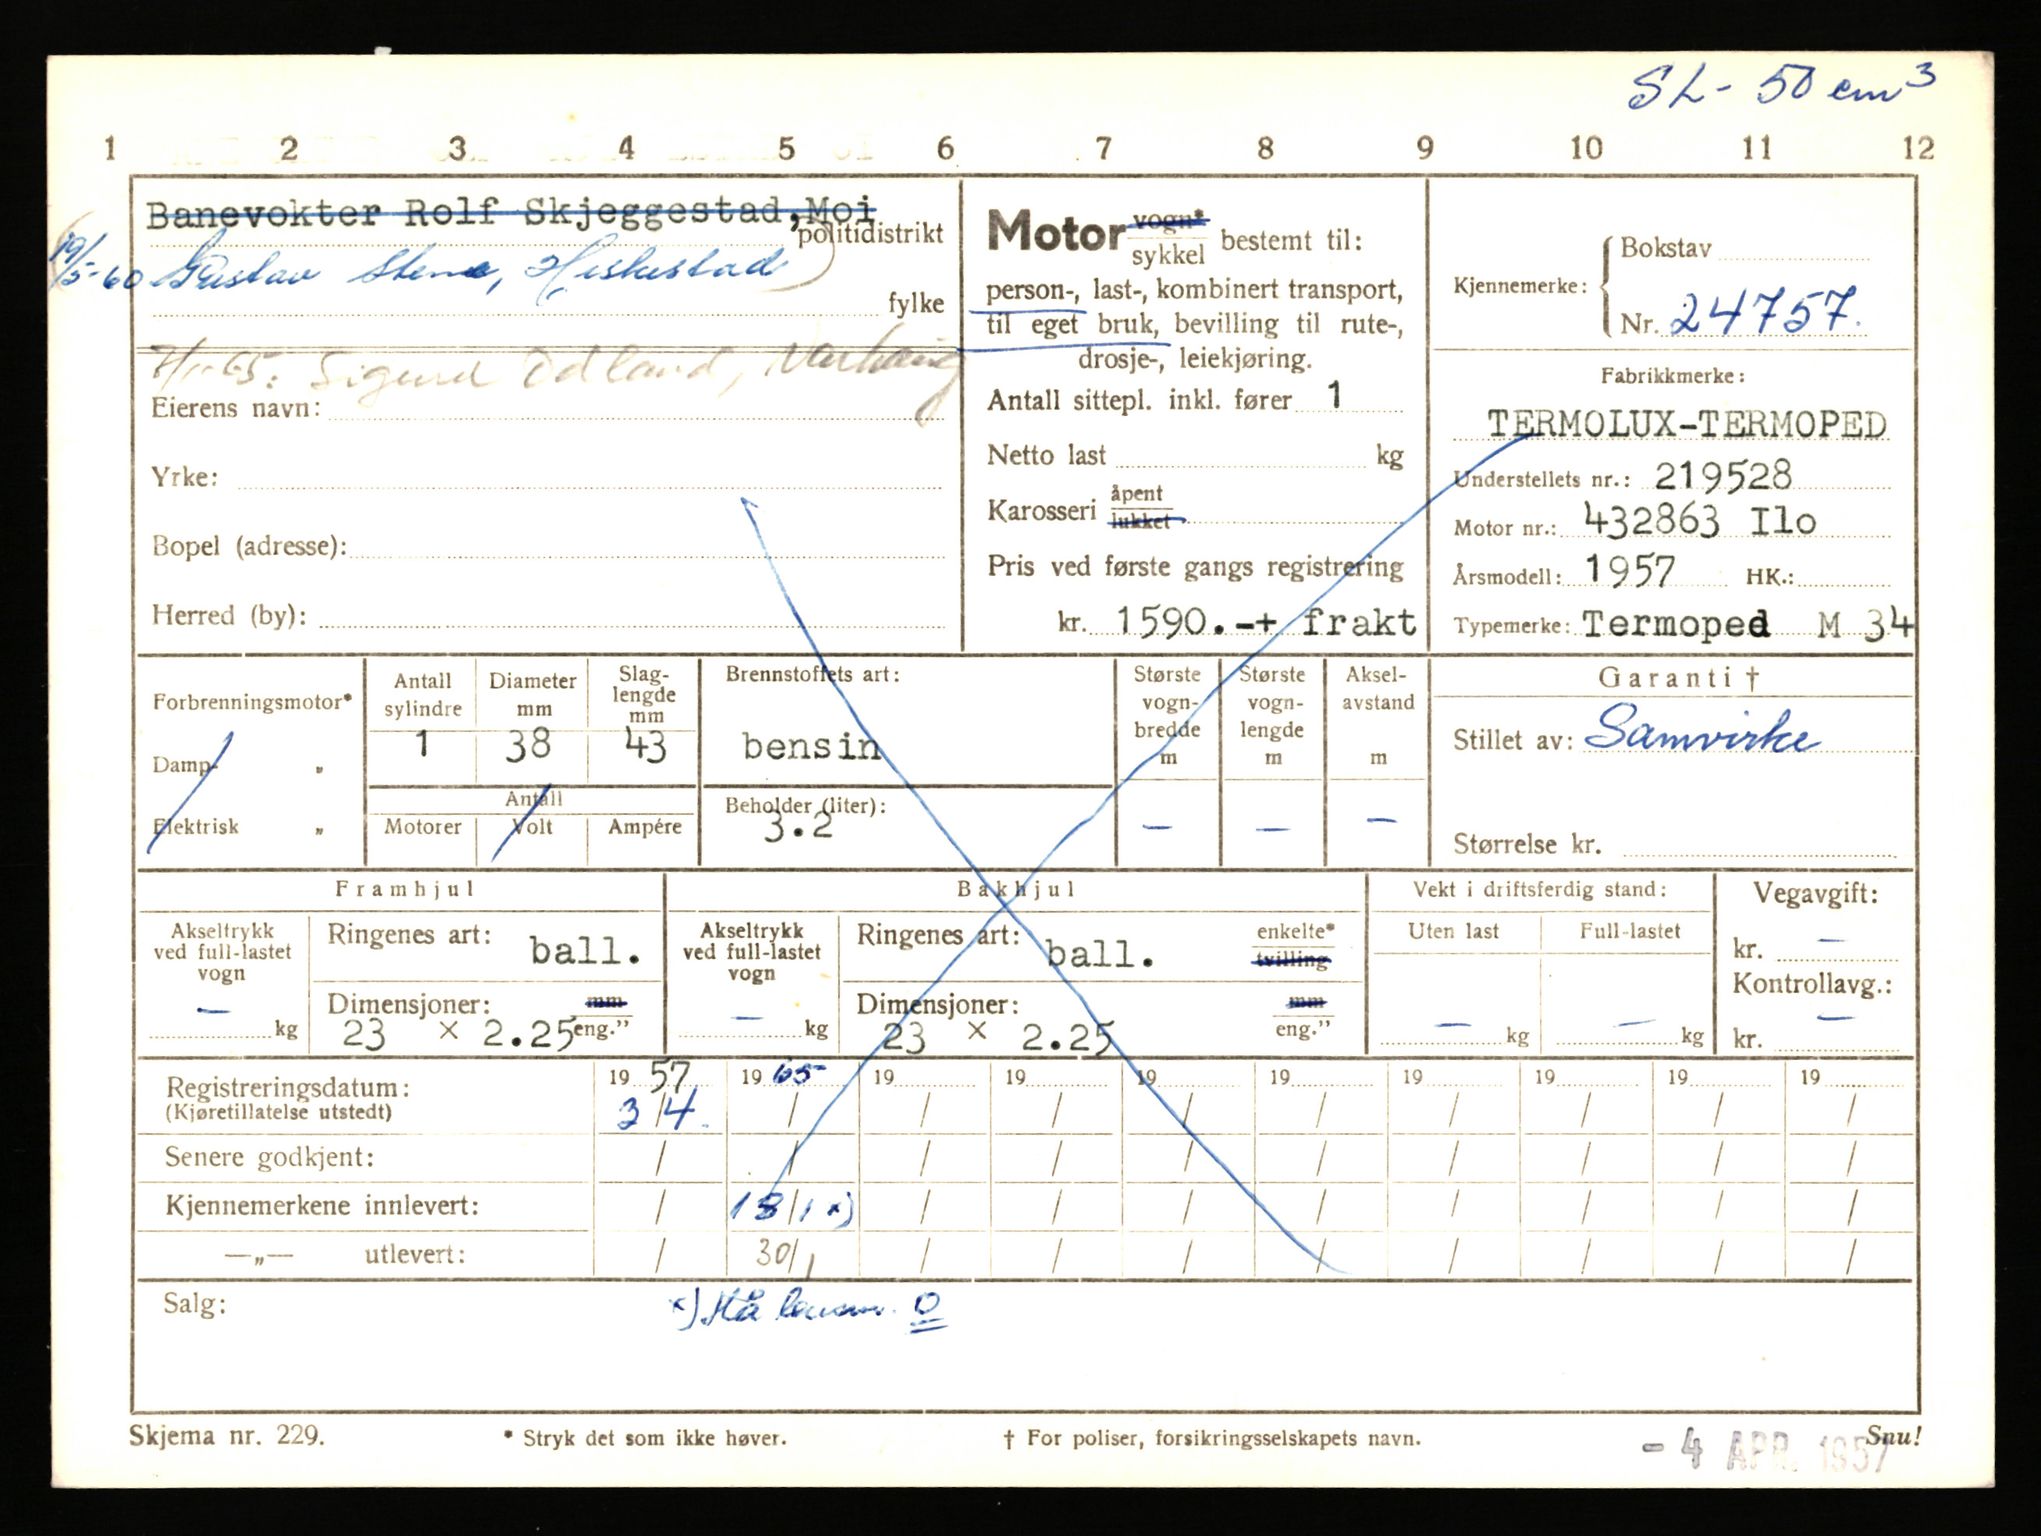 SL - 50 cm³
1 2 3 4 5 6 7 8 9 10 11 12
Banevokter Rolf Skjeggestad, Moi
politidistrikt
19/5-60 Gustav Stene, Heskestad
fylke
65: Sigurd Odland, Varhaug
Eierens navn:
Yrke:
Bopel (adresse):
Herred (by):
Motor vogn* sykkel bestemt til:
person-, last-, kombinert transport,
til eget bruk, bevilling til rute-,
drosje-, leiekjøring.
Antall sittepl. inkl. fører 1
Netto last kg
Karosseri åpent lukket
Pris ved første gangs registrering
kr. 1590.-+ frakt
Kjennemerke: Bokstav
Nr. 24757.
Fabrikkmerke:
TERMOLUX-TERMOPED
Understellets nr.: 219528
Motor nr.: 432863 Ilo
Årsmodell: 1957 HK.:
Typemerke: Termoped M 34
Forbrenningsmotor*
Damp- „
Elektrisk „
Antall sylindre
1
Diameter mm
38
Slag-lengde mm
43
Antall
Motorer Volt Ampére
Brennstoffets art:
bensin
Beholder (liter):
3.2
Største vogn-bredde m
—
Største vogn-lengde m
—
Aksel-avstand m
—
Garanti †
Stillet av: Samvirke
Størrelse kr.
Framhjul
Akseltrykk ved full-lastet vogn
— kg
Ringenes art: ball.
Dimensjoner: mm
23 × 2.25 eng.”
Bakhjul
Akseltrykk ved full-lastet vogn
— kg
Ringenes art: ball. enkelte* tvilling
Dimensjoner: mm
23 × 2.25 eng.”
Vekt i driftsferdig stand:
Uten last Full-lastet
— kg — kg
Vegavgift:
kr. —
Kontrollavg.:
kr. —
Registreringsdatum: 19 57 19 65 19 19 19 19 19 19 19 19
(Kjøretillatelse utstedt) 3/4 / / / / / / / / /
Senere godkjent: / / / / / / / / / /
Kjennemerkene innlevert: / 18/1 x) / / / / / / / /
—„— utlevert: / 30/1 / / / / / / / /
Salg:
x) Hå lensm. O
Skjema nr. 229.
* Stryk det som ikke høver.
† For poliser, forsikringsselskapets navn.
Snu!
- 4 APR. 1957